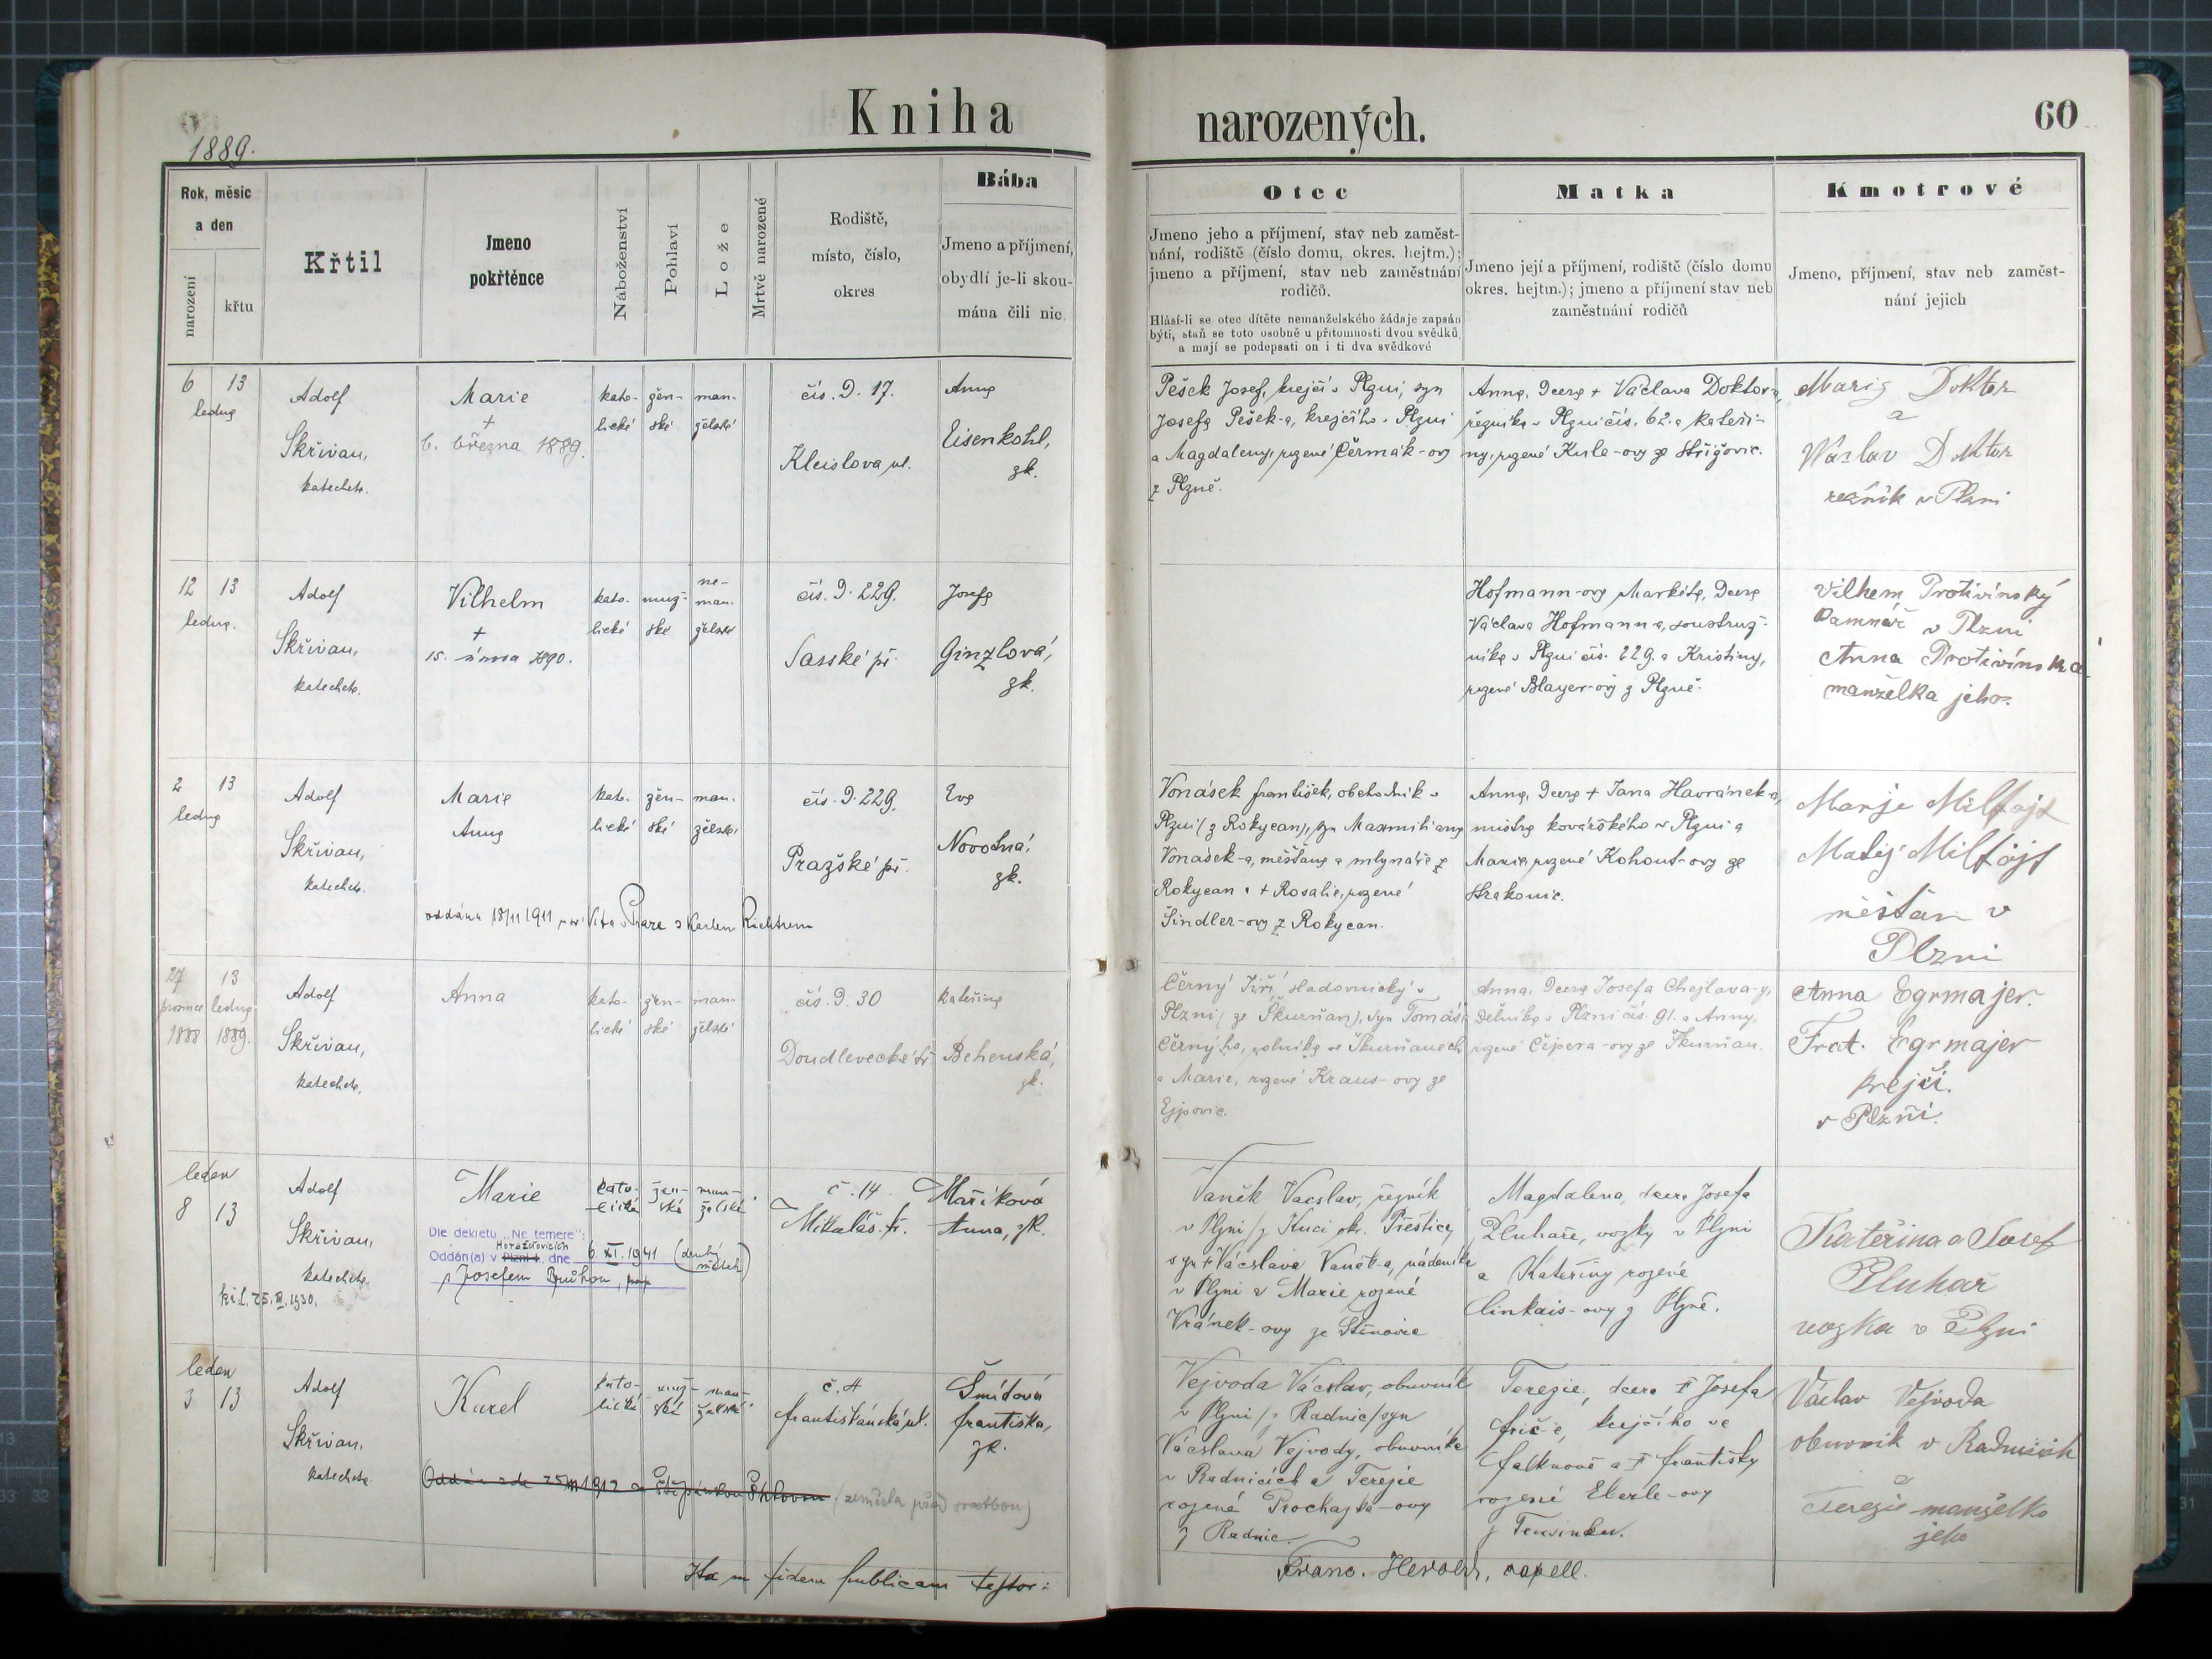 Kniha
narozených.
60
1889.
Rok, měsíc
a den
narození
křtu
Křtil
Jmeno
pokřtěnce
Náboženství
Pohlaví
Lože
Mrtvě narozené
Rodiště,
místo, číslo,
okres
Bába
Jmeno a příjmení,
obydlí je-li skou-
mána čili nic.
Otec
Jmeno jeho a příjmení, stav neb zaměst-
nání, rodiště (číslo domu, okres. hejtm.);
jmeno a příjmení, stav neb zaměstnání
rodičů.
Hlásí-li se otec dítěte nemanželského žádaje zapsán
býti, staň se toto osobně u přítomnosti dvou svědků,
a mají se podepsati on i ti dva svědkové
Matka
Jmeno její a příjmení, rodiště (číslo domu
okres. hejtm.); jmeno a příjmení stav neb
zaměstnání rodičů
Kmotrové
Jmeno, příjmení, stav neb zaměst-
nání jejich
6 13
ledna
Adolf
Skřivan,
katecheta.
Marie
+
6. března 1889.
kato-
lické
žen-
ské
man-
želské
čís. D. 17.
Kleislova ul.
Anna
Eisenkohl,
zk.
Pešek Josef, krejčí v Plzni, syn
Josefa Pešek-a, krejčího v Plzni
a Magdaleny, rozené Čermák-ovy
z Plzně.
Anna, dcera + Václava Doktora,
řezníka v Plzni čís. 62. a Kateři-
ny, rozené Kule-ovy ze Střížovic.
Marie Doktor
a
Václav Doktor
řezník v Plzni
12 13
ledna.
Adolf
Skřivan,
katecheta.
Vilhelm
+
15. února 1890.
kato-
lické
muž-
ské
ne-
man-
želské
čís. D. 229.
Sasské př.
Josefa
Ginzlová,
zk.
Hofmann-ovy Markéta, dcera
Václava Hofmanna, soustruž-
níka v Plzni čís. 229. a Kristiny,
rozené Blayer-ovy z Plzně.
Vilhem Protivínský
kamnář v Plzni
Anna Protivínska
manželka jeho.
2 13
ledna
Adolf
Skřivan,
katecheta.
Marie
Anna
kato-
lické
žen-
ské
man-
želské
čís. D. 229.
Pražské př.
Eva
Novotná,
zk.
oddána 18/11 1911 u sv. Víta v Praze s Karlem Richtrem
Vonásek František, obchodník v
Plzni (z Rokycan), syn Maxmiliana
Vonásek-a, měšťana a mlynáře z
Rokycan a + Rosalie, rozené
Šindler-ovy z Rokycan.
Anna, dcera + Jana Havránek-a,
mistra kovářského v Plzni a
Marie, rozené Kohout-ovy ze
Strakonic.
Marje Milfajt
Matěj Milfajt
měšťan v
Plzni
27 13
prosince ledna
1888 1889.
Adolf
Skřivan,
katecheta.
Anna
kato-
lické
žen-
ské
man-
želské
čís. D. 30
Doudlevecké tř.
Kateřina
Behenská,
zk.
Černý Jiří, sladovnický v
Plzni (ze Škurňan), syn Tomáše
Černýho, rolníka ve Škurňanech
a Marie, rozené Kraus-ovy ze
Ejpovic.
Anna, dcera Josefa Chejlava-y,
dělníka v Plzni čís. 91. a Anny,
rozené Čipera-ovy ze Škurňan.
Anna Egrmajer.
Frat. Egrmajer
krejčí.
v Plzni.
leden
8 13
Adolf
Skřivan,
katecheta
kř. l. 25. III. 1930.
Marie
Dle dekretu „Ne temere":
Horažďovicích
Oddán(a) v Plzni I. dne 6. XI. 1941 (druhý
sňatek)
s Josefem Brůhou,
kato-
lické
žen-
ské
man-
želské
č. 14
Mikuláš. tř.
Maříková
Anna, zk.
Vaněk Vácslav, řezník
v Plzni /z Kucí okr. Přeštice/
syn + Vácslava Vaněk-a, nádeníka
v Plzni a Marie rozené
Vránek-ovy ze Štěnovic
Magdalena, dcera Josefa
Pluhaře, vozky v Plzni
a Kateřiny rozené
Cinkais-ovy z Plzně.
Kateřina a Josef
Pluhař
vozka v Plzni
leden
3 13
Adolf
Skřivan,
katecheta
Karel
kato-
lické
muž-
ské
man-
želské
č. 4
Františkánská ul.
Šmídová
Františka,
zk.
Oddán zde 1912 se Štěpánkou (zemřela před svatbou)
Vejvoda Vácslav, obuvník
v Plzni /z Radnic/ syn
Vácslava Vejvody, obuvníka
v Radnicích a Terezie
rozené Procházka-ovy
z Radnic
Terezie, dcera + Josefa
Friče, krejčího ve
Falknově a + Františky
rozené Eberle-ovy
Václav Vejvoda
obuvník v Radnicích
a
Terezie manželka
jeho
Ita in fidem publicam testor:
Franc. Herold, capell.